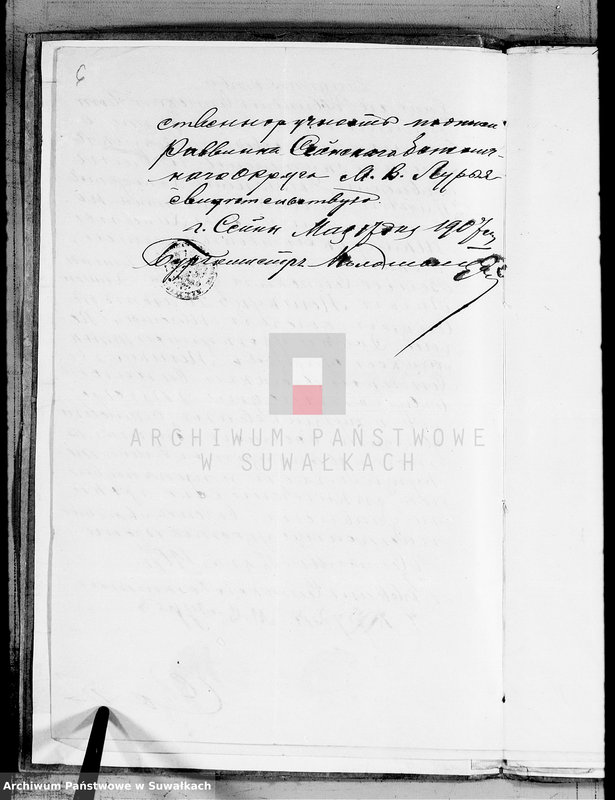 6
ственноручность подписи
Раввина Сейнского божнич-
наго округа М. В. Лурья
свидѣтельствую.
г. Сейны Мая 17 дня 1907 г.
Бургомистръ
ARCHIWUM PAŃSTWOWE
W SUWAŁKACH
Archiwum Państwowe w Suwałkach